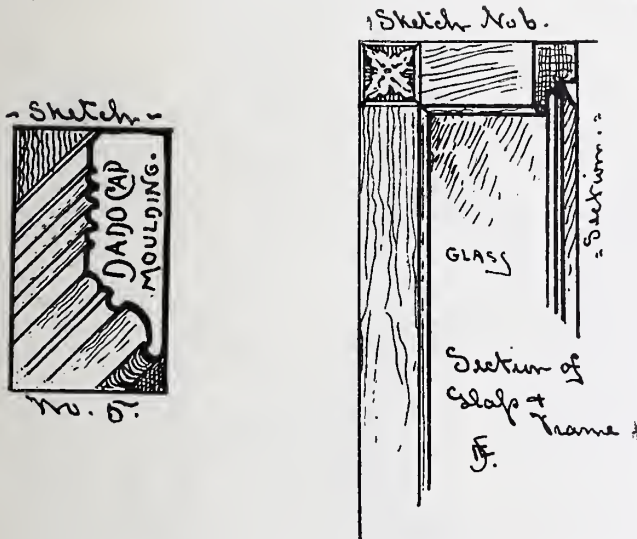 Sketch
DADO CAP
MOULDING.
No. 5.
Sketch No 6.
GLASS
"Section."
Section of
Glass &
Frame